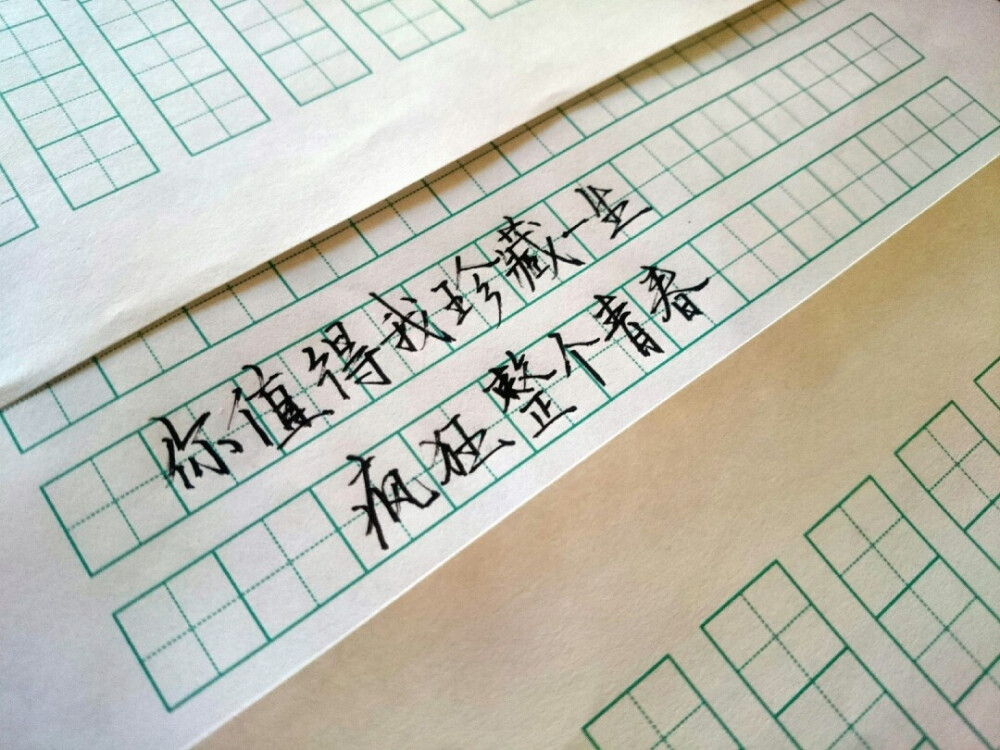 你值得我珍藏一生
疯狂整个青春